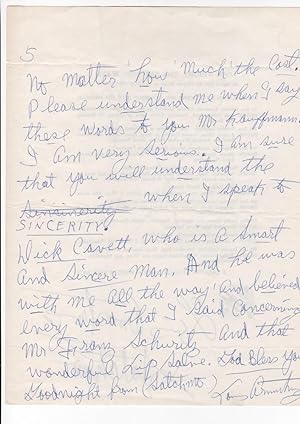 5
No matter 'how' 'Much' the Cost.
Please understand me when I say
these words to you Mr Kauffmann.
I Am very Serious. I am sure
that you will understand the
when I speak to
SINCERITY
Dick Cavett, who is a Smart
and Sincere Man. And he was
with me All the way and believed
every word that I said Concerning
Mr Franz Schuritz and that
wonderful Lip Salve. God Bless You
Goodnight from (Satchmo) Louis Armstrong